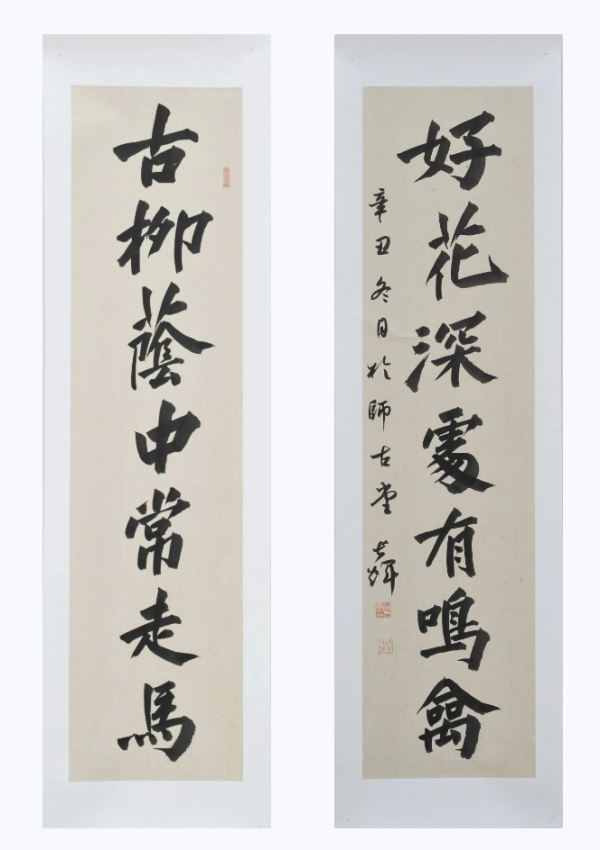 古柳蔭中常走馬
好花深處有鳴禽
辛丑冬日於師古堂